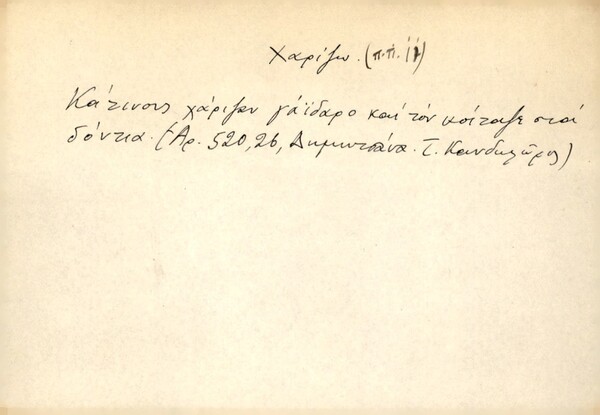 Χαρίζω. (π.π. 11)
Κάτινους χάριζαν γάϊδαρο καί τόν κοίταζε στά
δόντια. (Αρ. 520, 26, Δημητσάνα. Τ. Κανδηλῶρος)